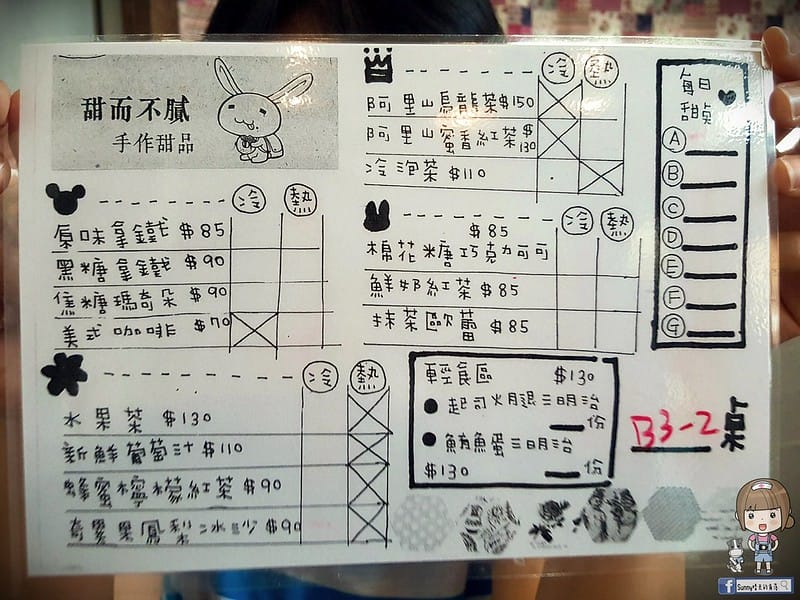 甜而不膩
手作甜品
冷 熱
原味拿鐵 $85
黑糖拿鐵 $90
焦糖瑪奇朵 $90
美式咖啡 $70
冷 熱
水果茶 $130
新鮮葡萄汁 $110
蜂蜜檸檬紅茶 $90
奇異果鳳梨冰沙 $90
冷 熱
阿里山烏龍茶 $150
阿里山蜜香紅茶 $130
冷泡茶 $110
冷 熱
$85
棉花糖巧克力可可
鮮奶紅茶 $85
抹茶歐蕾 $85
輕食區 $130
起司火腿三明治
份
鮪魚蛋三明治
$130 份
每日
甜點
A
B
C
D
E
F
G
B3-2 桌
Sunny